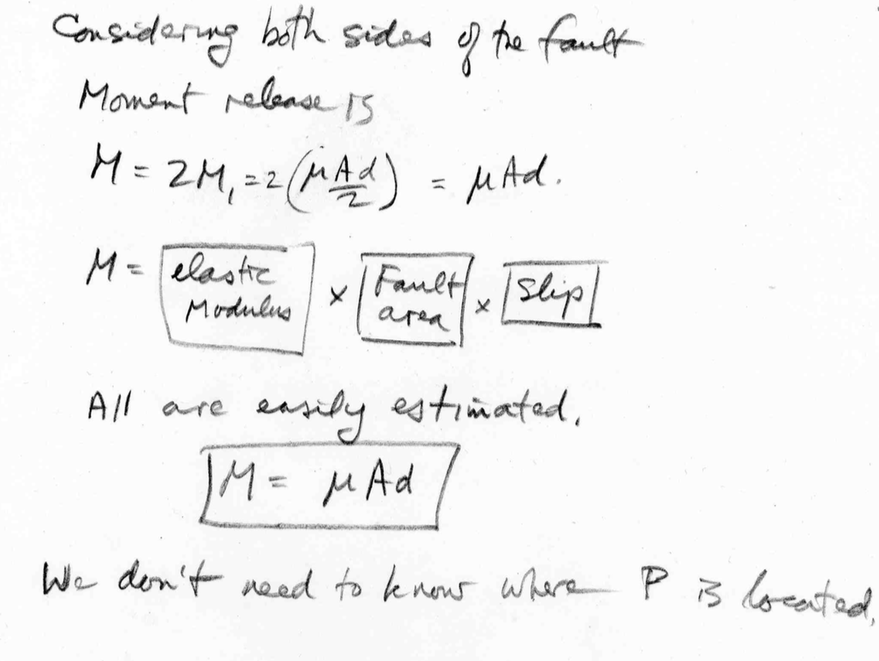 Considering both sides of the fault
Moment release is
M = 2M₁ = 2(μAd/2) = μAd.
M = elastic Modulus × Fault area × Slip
All are easily estimated.
M = μAd
We don't need to know where P is located.